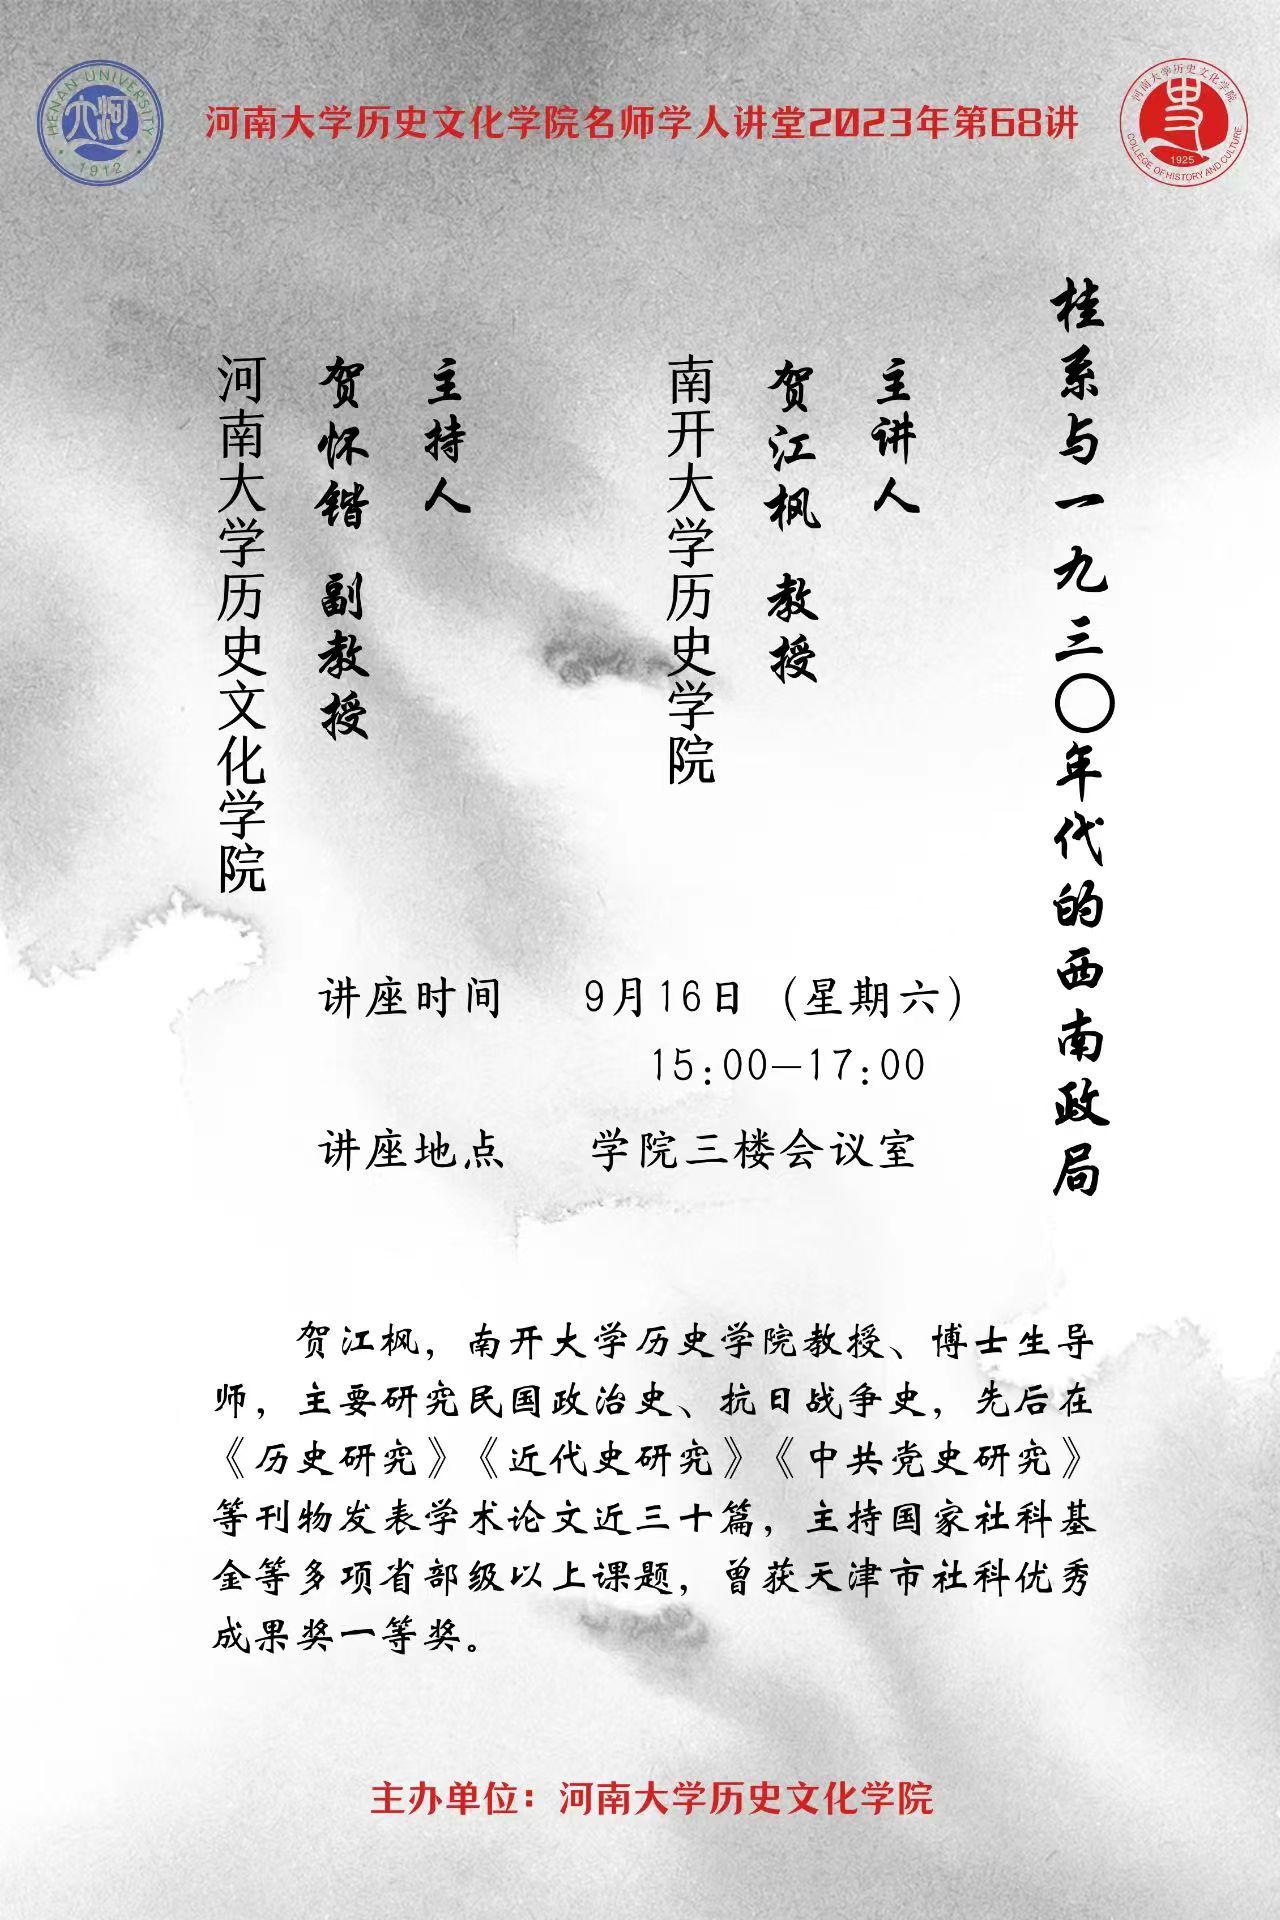 HENAN UNIVERSITY
1912
河南大学历史文化学院名师学人讲堂2023年第68讲
河南大学历史文化学院
1925
COLLEGE OF HISTORY AND CULTURE
桂系与一九三〇年代的西南政局
主讲人
贺江枫 教授
南开大学历史学院
主持人
贺怀锴 副教授
河南大学历史文化学院
讲座时间 9月16日（星期六）
15:00—17:00
讲座地点 学院三楼会议室
贺江枫，南开大学历史学院教授、博士生导
师，主要研究民国政治史、抗日战争史，先后在
《历史研究》《近代史研究》《中共党史研究》
等刊物发表学术论文近三十篇，主持国家社科基
金等多项省部级以上课题，曾获天津市社科优秀
成果奖一等奖。
主办单位：河南大学历史文化学院